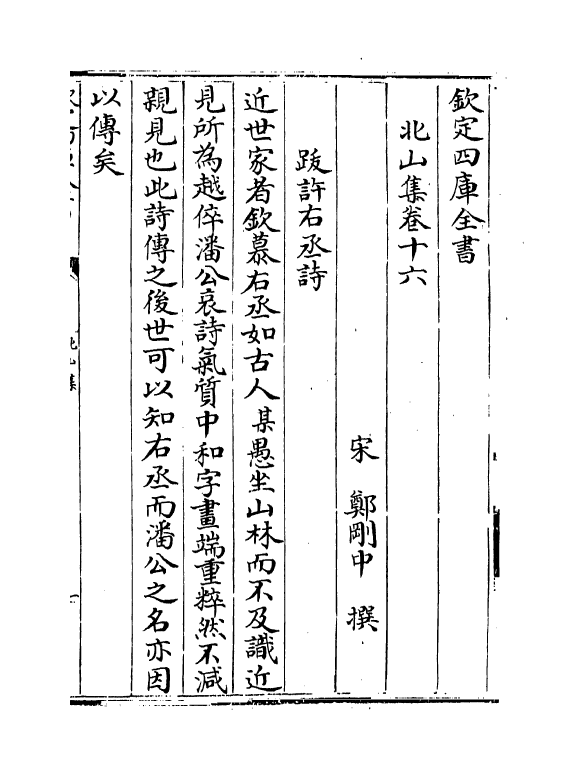 欽定四庫全書
北山集卷十六
宋 鄭剛中 撰
跋許右丞詩
近世家者欽慕右丞如古人某愚坐山林而不及識近
見所為越倅潘公哀詩氣質中和字畫端重粹然不減
親見也此詩傳之後世可以知右丞而潘公之名亦因
以傳矣
北山集